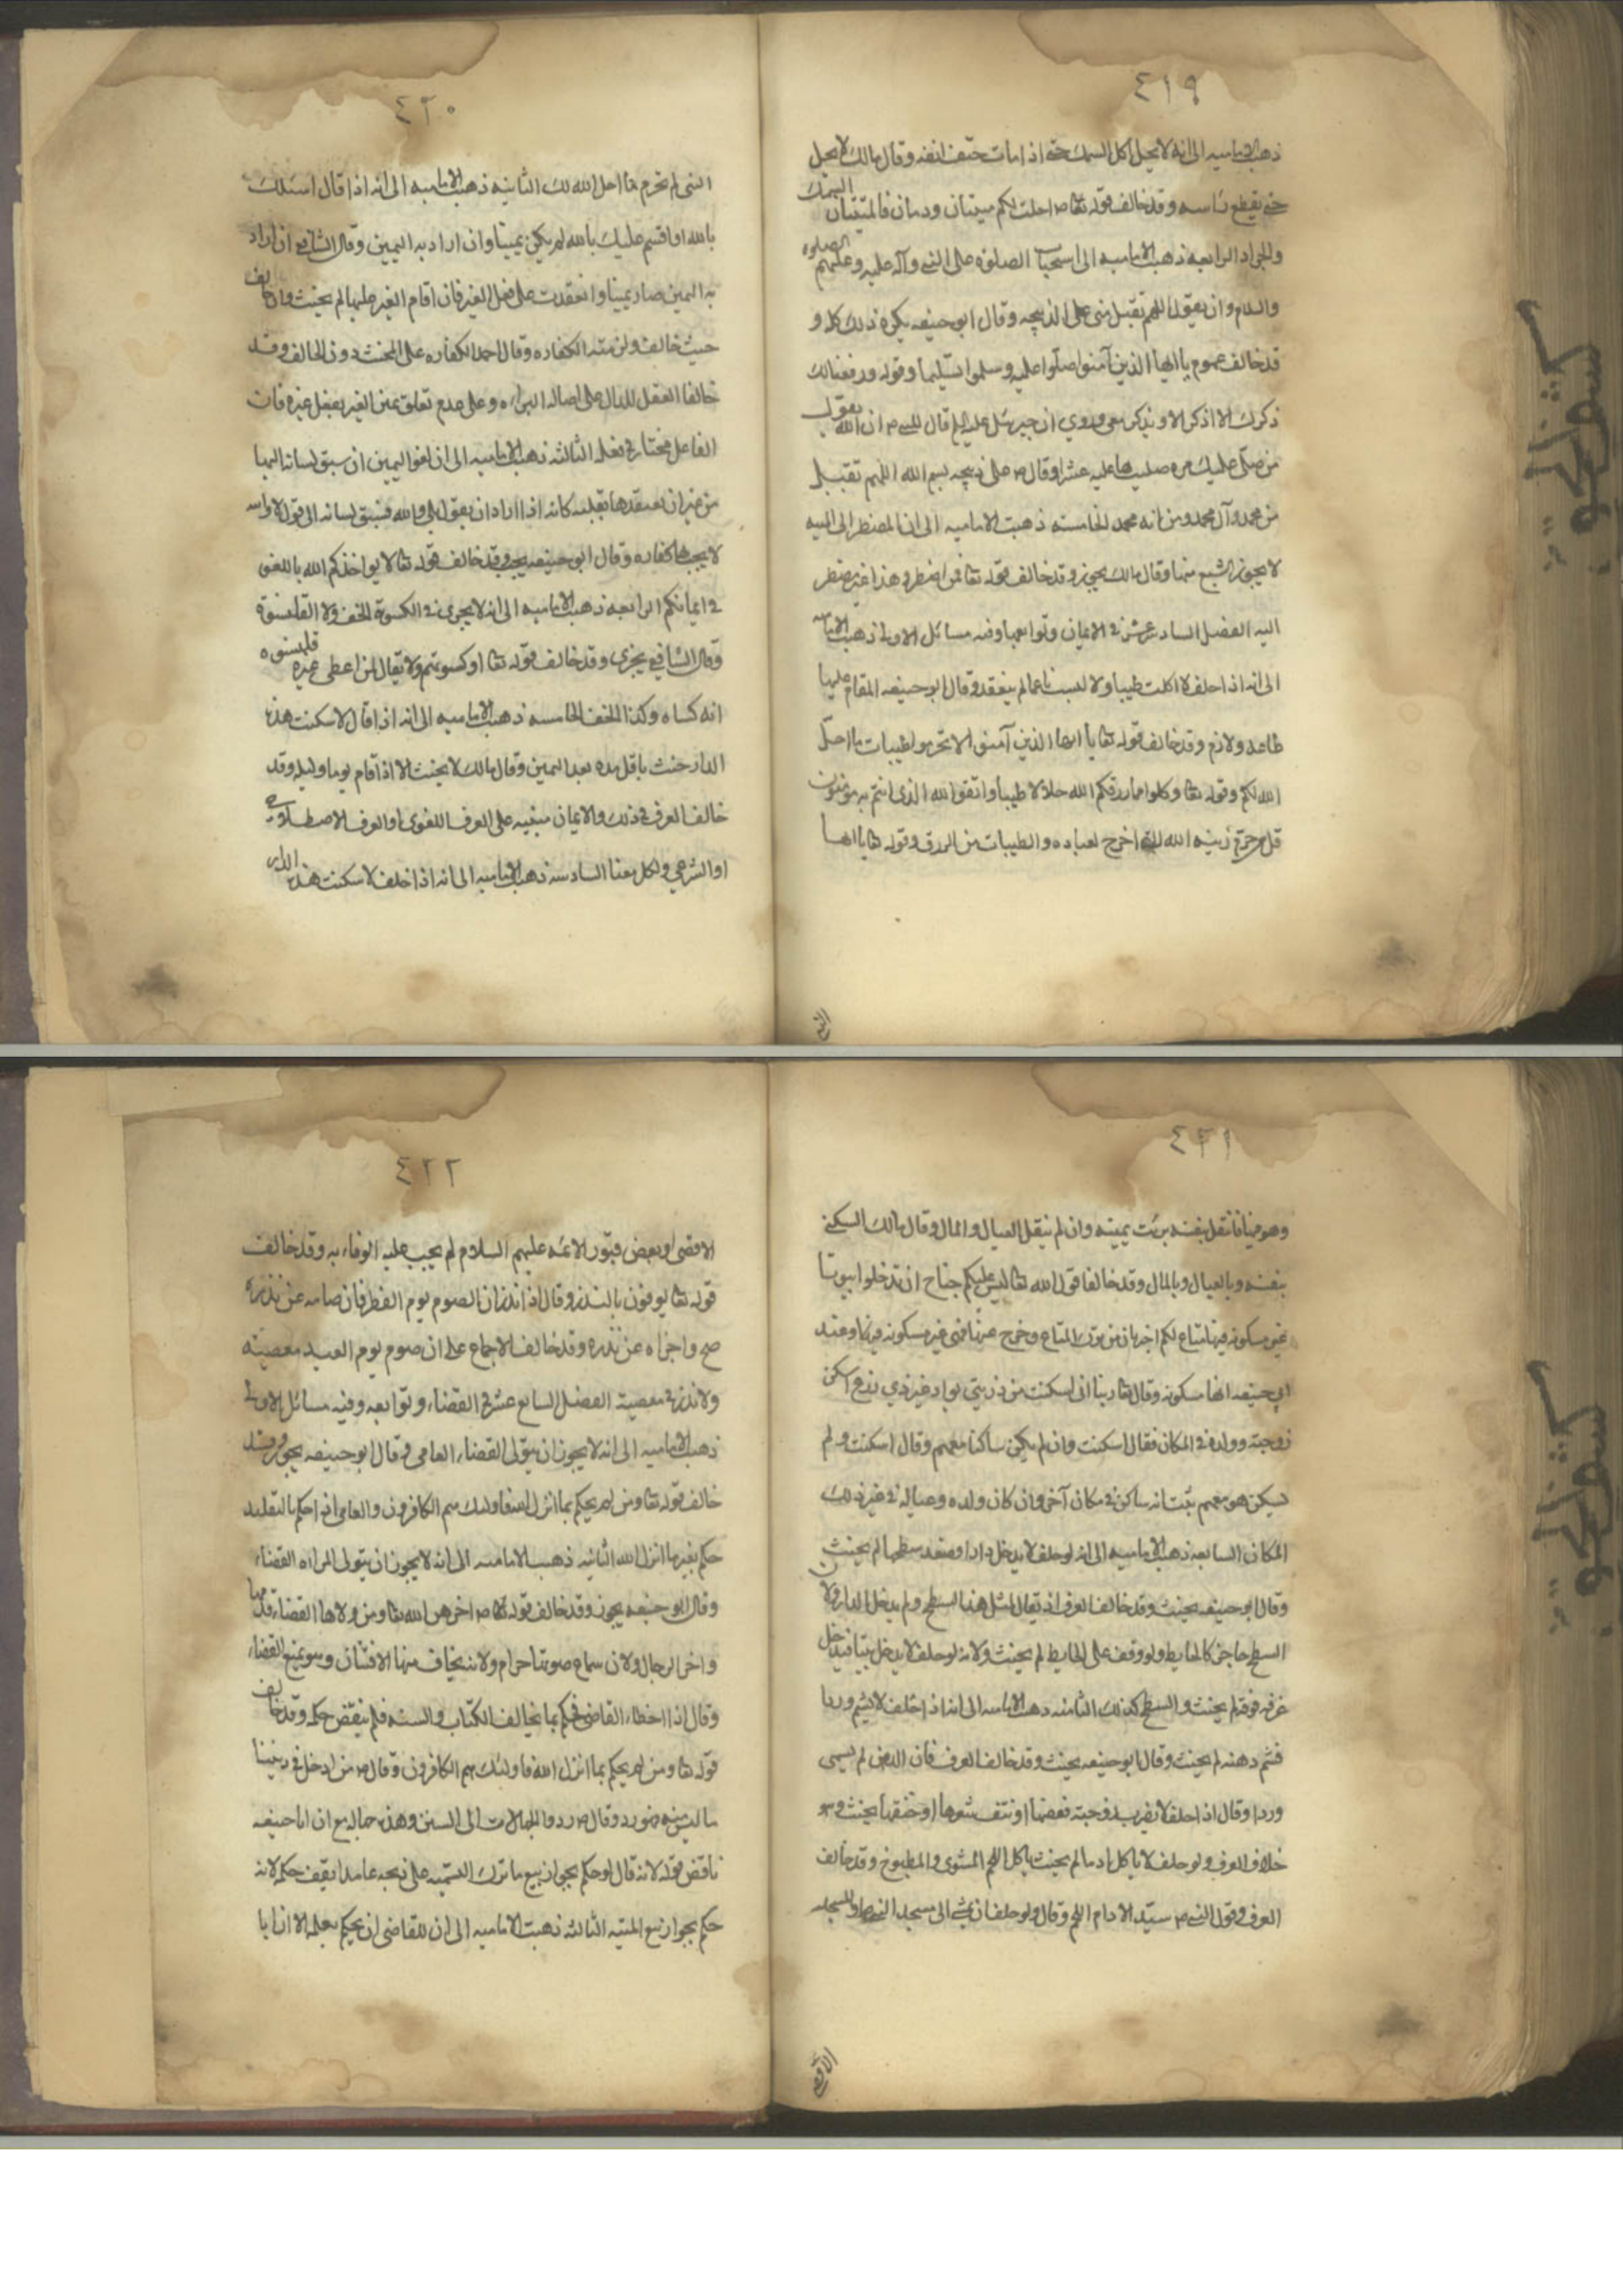 ٤١٩
ذهب الامامیه الی انه لا یحل اکل السمک حتی اذا مات حتف انفه وقال مالک لا یحل
حتی یقطع راسه وقد خالف قوله احلت لکم میتتان ودمان فالمیتتان السمک
والجراد الرابعه ذهب الامامیه الی استحباب الصلوة علی النبی وآله علیه وعلیهم الصلوة
والسلام وان یقول اللهم تقبل منی علی الذبیحه وقال ابو حنیفه یکره ذلک کله و
قد خالف عموم یا ایها الذین آمنوا صلوا علیه وسلموا تسلیما وقوله ورفعنا لک
ذکرک الا اذکر الا وتذکر معی وروی ان جبرئیل علیه السلم قال للنبی ص ان الله یقول
من صلی علیک مره صلیت بها علیه عشرا وقال ص علی ذبیحه بسم الله اللهم تقبل
من محمد وآل محمد ومن امه محمد الخامسه ذهبت الامامیه الی ان المضطر الی المیته
لا یجوز الشبع منها وقال مالک یجوز وقد خالف قوله تعا فمن اضطر وهذا غیر مضطر
الیه الفصل السادس عشر فی الایمان وتوابعها وفیه مسائل الاولی ذهب الامامیه
الی انه اذا حلف لا اکلت طیبا ولا لبست ناعما لم ینعقد وقال ابو حنیفه المقام علیها
طاعه ولازم وقد خالف قوله تعا یا ایها الذین آمنوا لا تحرموا طیبات ما احل
الله لکم وقوله تعا وکلوا مما رزقکم الله حلالا طیبا واتقوا الله الذی انتم به مؤمنون
قل من حرم زینه الله التی اخرج لعباده والطیبات من الرزق وقوله تعا یا ایها
النبی
٤٢٠
النبی لم تحرم ما احل الله لک الثانیه ذهب الامامیه الی انه اذا قال اسئلک
بالله او اقسم علیک بالله لم یکن یمینا وان اراد به الیمین وقال الشافعی ان اراد
به الیمین صار یمینا وانعقدت علی فعل الغیر فان اقام الغیر علیها لم یحنث وان خالف
حیث خالف ولزمته الکفاره وقال احمد الکفاره علی المحنث دون الحالف وقد
خالفا العقل الدال علی اصاله البراءه وعلی عدم تعلق یمین الغیر بفعل غیره فان
الفاعل مختار فی فعله الثالثه ذهب الامامیه الی ان لغو الیمین ان سبق لسانه الیها
من غیر ان یعتقدها بقلبه کانه اذا اراد ان یقول بلی والله فسبق لسانه الی قول لا والله
لا یجب بها کفاره وقال ابو حنیفه یجب وقد خالف قوله تعا لا یواخذکم الله باللغو
فی ایمانکم الرابعه ذهب الامامیه الی انه لا یجزی فی الکسوة الخف ولا القلنسوة
وقال الشافعی یجزی وقد خالف قوله تعا او کسوتهم ولا یقال لمن اعطی غیره قلنسوه
انه کساه وکذا الخف الخامسه ذهب الامامیه الی انه اذا قال لا سکنت هذه
الدار حنث باقل مده بعد الیمین وقال مالک لا یحنث الا اذا اقام یوما ولیله وقد
خالف العرف فی ذلک والایمان مبنیه علی العرف اللغوی او العرف الاصطلاحی
او الشرعی ولکل معنا السادسه ذهب الامامیه الی انه اذا حلف لا سکنت هذه الدار
٤٢١
وهو فیها فانتقل بنفسه برئت یمینه وان لم ینقل العیال والمال وقال مالک السکنی
بنفسه وبالعیال وبالمال وقد خالفا قول الله تعا لیس علیکم جناح ان تدخلوا بیوتا
غیر مسکونه فیها متاع لکم اخبر بان من ترک المتاع وخرج عنها فهی غیر مسکونه فیها وعند
ابی حنیفه انها مسکونه وقال تعا ربنا انی اسکنت من ذریتی بواد غیر ذی زرع اسکن
زوجته وولده فی المکان فقال اسکنت وان لم یکن ساکنا معهم وقال اسکنت ولم
یسکن هو معهم ثبت انه ساکن فی مکان آخر وان کان ولده وعیاله فی غیر ذلک
المکان السابعه ذهب الامامیه الی انه لو حلف لا یدخل دارا وصعد سطحها لم یحنث
وقال ابو حنیفه یحنث وقد خالف العرف اذ یقال لمثل هذا السطح ولم یدخل الدار ولان
السطح حاجز کالحایط ولو وقف علی الحایط لم یحنث ولانه لو حلف لا یدخل بیتا فدخل
غرفه فوقه لم یحنث والسطح کذلک الثامنه ذهب الامامیه الی انه اذا حلف لا یشم وردا
فشم دهنه لم یحنث وقال ابو حنیفه یحنث وقد خالف العرف فان الدهن لم یسمی
وردا وقال اذا حلف لا یضرب زوجته فعضها او نتف شعرها او خنقها یحنث وهو
خلاف العرف ولو حلف لا یاکل ادما لم یحنث باکل اللحم المشوی والمطبوخ وقد خالف
العرف وقول النبی ص سید الادام اللحم وقال ولو حلف ان یمشی الی مسجد النبی ص او المسجد
الاقصی
٤٢٢
الاقصی او بعض قبور الائمه علیهم السلام لم یجب علیه الوفاء به وقد خالف
قوله تعا یوفون بالنذر وقال اذا نذر ان الصوم یوم الفطر فان صامه عن نذره
صح واجزاه عن نذره وقد خالف الاجماع علی ان صوم یوم العید معصیته
ولا نذر فی معصیة الفصل السابع عشر فی القضاء وتوابعه وفیه مسائل الاولی
ذهب الامامیه الی انه لا یجوز ان یتولی القضاء العامی وقال ابو حنیفه یجوز وقد
خالف قوله تعا ومن لم یحکم بما انزل الله فاولئک هم الکافرون والعامی اذا حکم بالتقلید
حکم بغیر ما انزل الله الثانیه ذهب الامامیه الی انه لا یجوز ان یتولی المراه القضاء
وقال ابو حنیفه یجوز وقد خالف قوله ص اخرهن الله تعا ومن ولاها القضاء قدمها
واخر الرجال ولان سماع صوتها حرام ولانه یخاف منها الافتتان وهو یمنع القضاء
وقال اذا اخطاء القاضی فحکم بما یخالف الکتاب والسنه فلم ینقض حکمه وقد خالف
قوله تعا ومن لم یحکم بما انزل الله فاولئک هم الکافرون وقال ص من ادخل فی دیننا
ما لیس منه فهو رد وقال ص ردوا الجهالات الی السنن وهذه جهاله مع ان ابا حنیفه
ناقض قوله لانه قال لو حکم بجواز بیع ما ترک التسمیه علی ذبحه عامدا نقض حکمه لانه
حکم بجواز بیع المیته الثالثه ذهبت الامامیه الی ان للقاضی ان یحکم بعلمه الا ان ابا